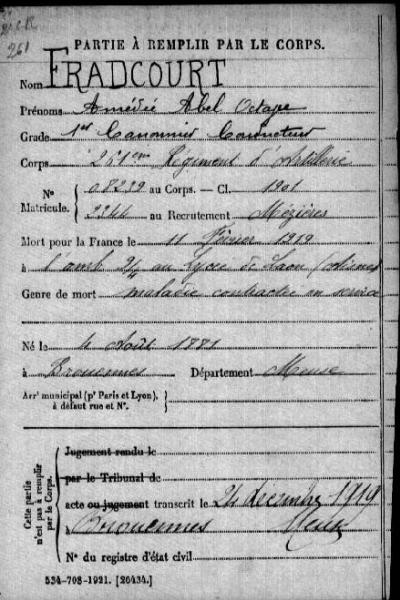 261
PARTIE À REMPLIR PAR LE CORPS.
Nom FRADCOURT
Prénoms Amédée Abel Octave
Grade 1er Canonnier Conducteur
Corps 261eme Régiment d'Artillerie
N° Matricule. { 08239 au Corps. — Cl. 1901
2344 au Recrutement Mézières
Mort pour la France le 11 Février 1919
à l'amb 2/4 au Lycée de Laon (Aisne)
Genre de mort maladie contractée en service
Né le 4 Août 1881
à Brouennes Département Meuse
Arrt municipal (pr Paris et Lyon),
à défaut rue et N°.
Cette partie n'est pas à remplir par le Corps.
Jugement rendu le
par le Tribunal de
acte ou jugement transcrit le 24 décembre 1919
à Brouennes Meuse
N° du registre d'état civil
534-708-1921. [26434.]